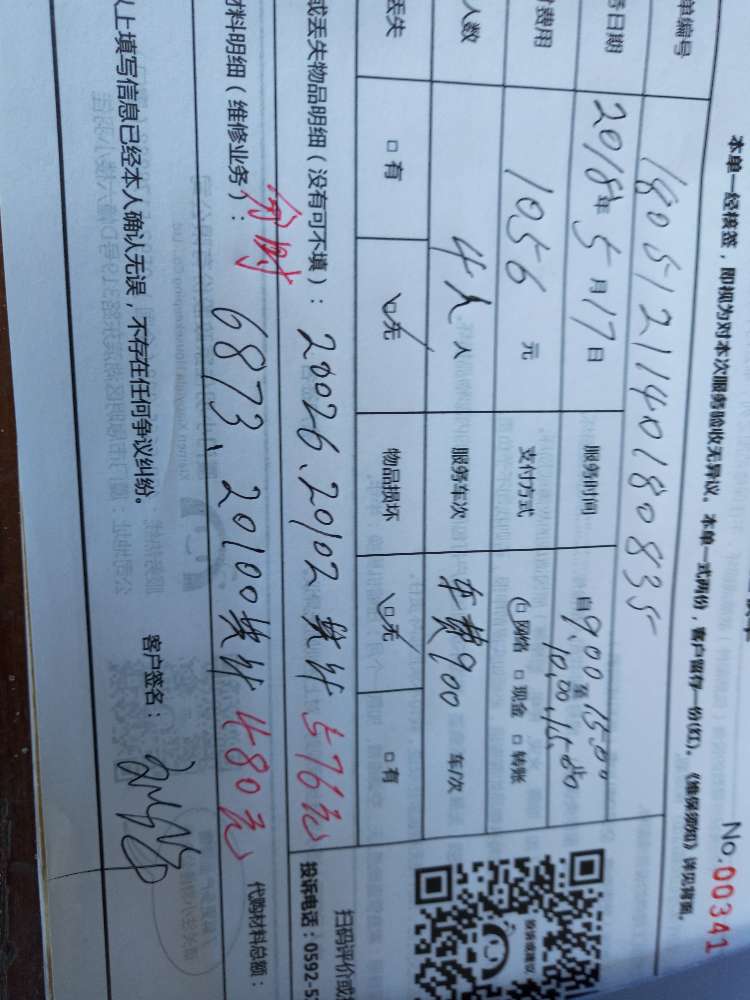 No.00341
本单一经核签，即视为对本次服务验收无异议。本单一式两份，客户留存一份(红)。《维保须知》详见背面。
单编号 1805121140180835
日期 2018年5月17日 服务时间 自9:00至15:00
10:00,15:00
费用 1056 元 支付方式 ☑网络 □现金 □转账
人数 4人 人 服务车次 车费900 车/次
丢失 □有 ☑无 物品损坏 ☑无 □有
或丢失物品明细（没有可不填）：20026、20102 共计 576元
材料明细（维修业务）：6873、20100共计 480元 代购材料总额：
以上填写信息已经本人确认无误，不存在任何争议纠纷。 客户签名：
扫码评价或
投诉电话：0592-5